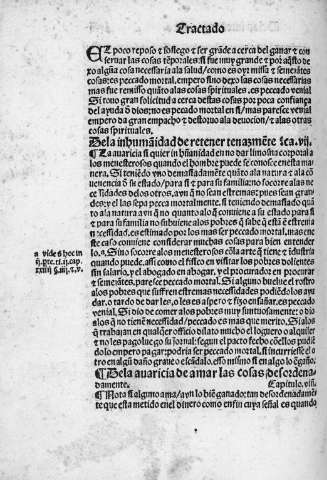 Tractado
El poco reposo ⁊ sossiego ⁊ ser grãde a cerca del ganar ⁊ con
seruar las cosas tẽporales: si fue muy grande ⁊ por aq̃sto de
xo algũa cosa necessaria ala salud/como es oyr missa ⁊ semejãtes
cosas: es peccado mortal. empero si no dexo las cosas necessarias
mas fue remisso quãto alas cosas spirituales. es peccado venial
Si touo gran solicitud a cerca destas cosas por poca confiança
del ayuda ð dios: no es peccado mortal en si/mas paresce venial
empero da gran empacho ⁊ destoruo ala deuocion/⁊ alas otras
cosas spirituales.
De la inhumãidad de retener tenazmẽte. ca. vii.
¶ La auaricia si quier in humanidad en no dar limosna corporal a
los menesterosos quando el hombre puede se conosce en esta ma
nera. Si teniẽdo
necia de su estado/para si ⁊ para su familia: no socorre alas ne
cessidades delos otros, avn q̃ no sean estremas; pues sean gran
des; ⁊ y el las sepa pecca mortalmente. si teniendo demasiado quã
to ala natura avn q̃ no quanto alo q̃ conuiene a su estado para si
⁊ para su familia no socorre aquien esta en
necessidad. es estimado por los mas ser peccado mortal. mas en e
ste caso conuiene considerar muchas cosas para bien entender
lo. Si no socorre alos menesterosos cõla arte q̃ tiene ⁊ industria
quando puede. assi como el fisico en visitar los pobres dolientes
sin salario. y el abogado en abogar. y el procurador en procurar
⁊ semejãtes. paresce peccado mortal. Si alguno buelue el rostro
alos pobres que suffren estremas necessidades pidiẽdolos ayu
da. o tardo de dar les. o les es aspero ⁊ se ensañar. es peccado
venial. Si dio de comer alos pobres muy suntuosamente: o dio
alos q̃ no tienẽ necessidad/peccado es mas que merito. Si alos
q̃ trabajan en qualquier officio dilato mucho el loguero o alquiler
⁊ no les pago luego su jornal: segun el pacto fecho cõellos pudiẽ
dolo empero pagar: podria ser peccado mortal. si incurriesse el o
tro en algũ daño graue o escãdalo. esso mismo si en algo lo engaño.
¶ De la auaricia de amar las cosas desordena
damente. Capitulo. viii.
¶ Nota si algun o ama/avn lo biẽ ganado: tan desordenadamẽ
te que esta metido en el dinero como en fin cuya señal es quando
a vide ð hoc in